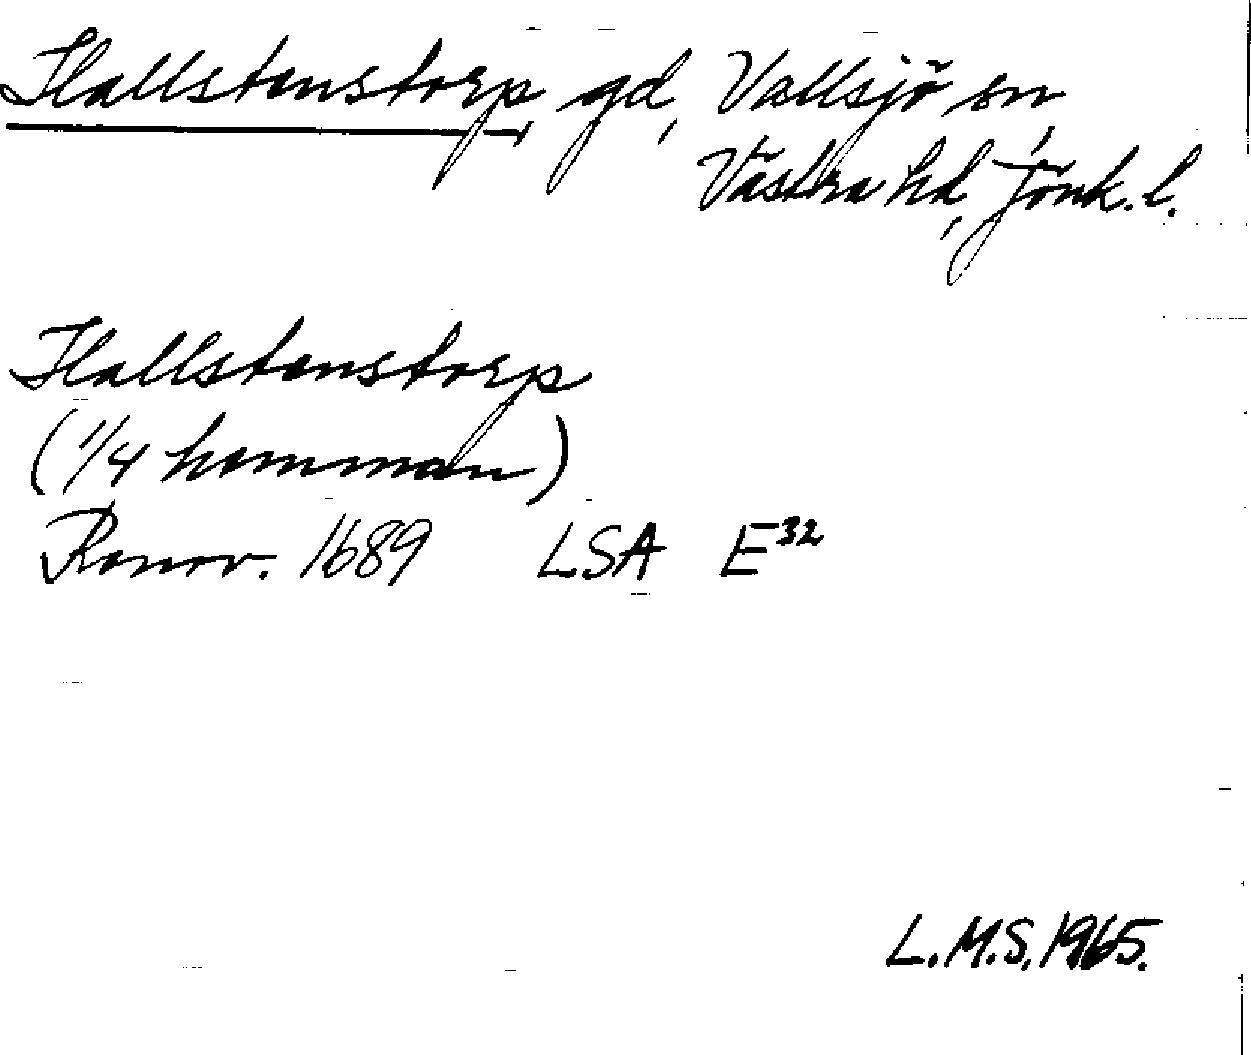 Hallstenstorp, gd, Vallsjö sn,
Västra hd, Jönk. l.
Hallstenstorp
(1/4 hemman)
Renov. 1689 LSA E32
L.M.S. 1965.